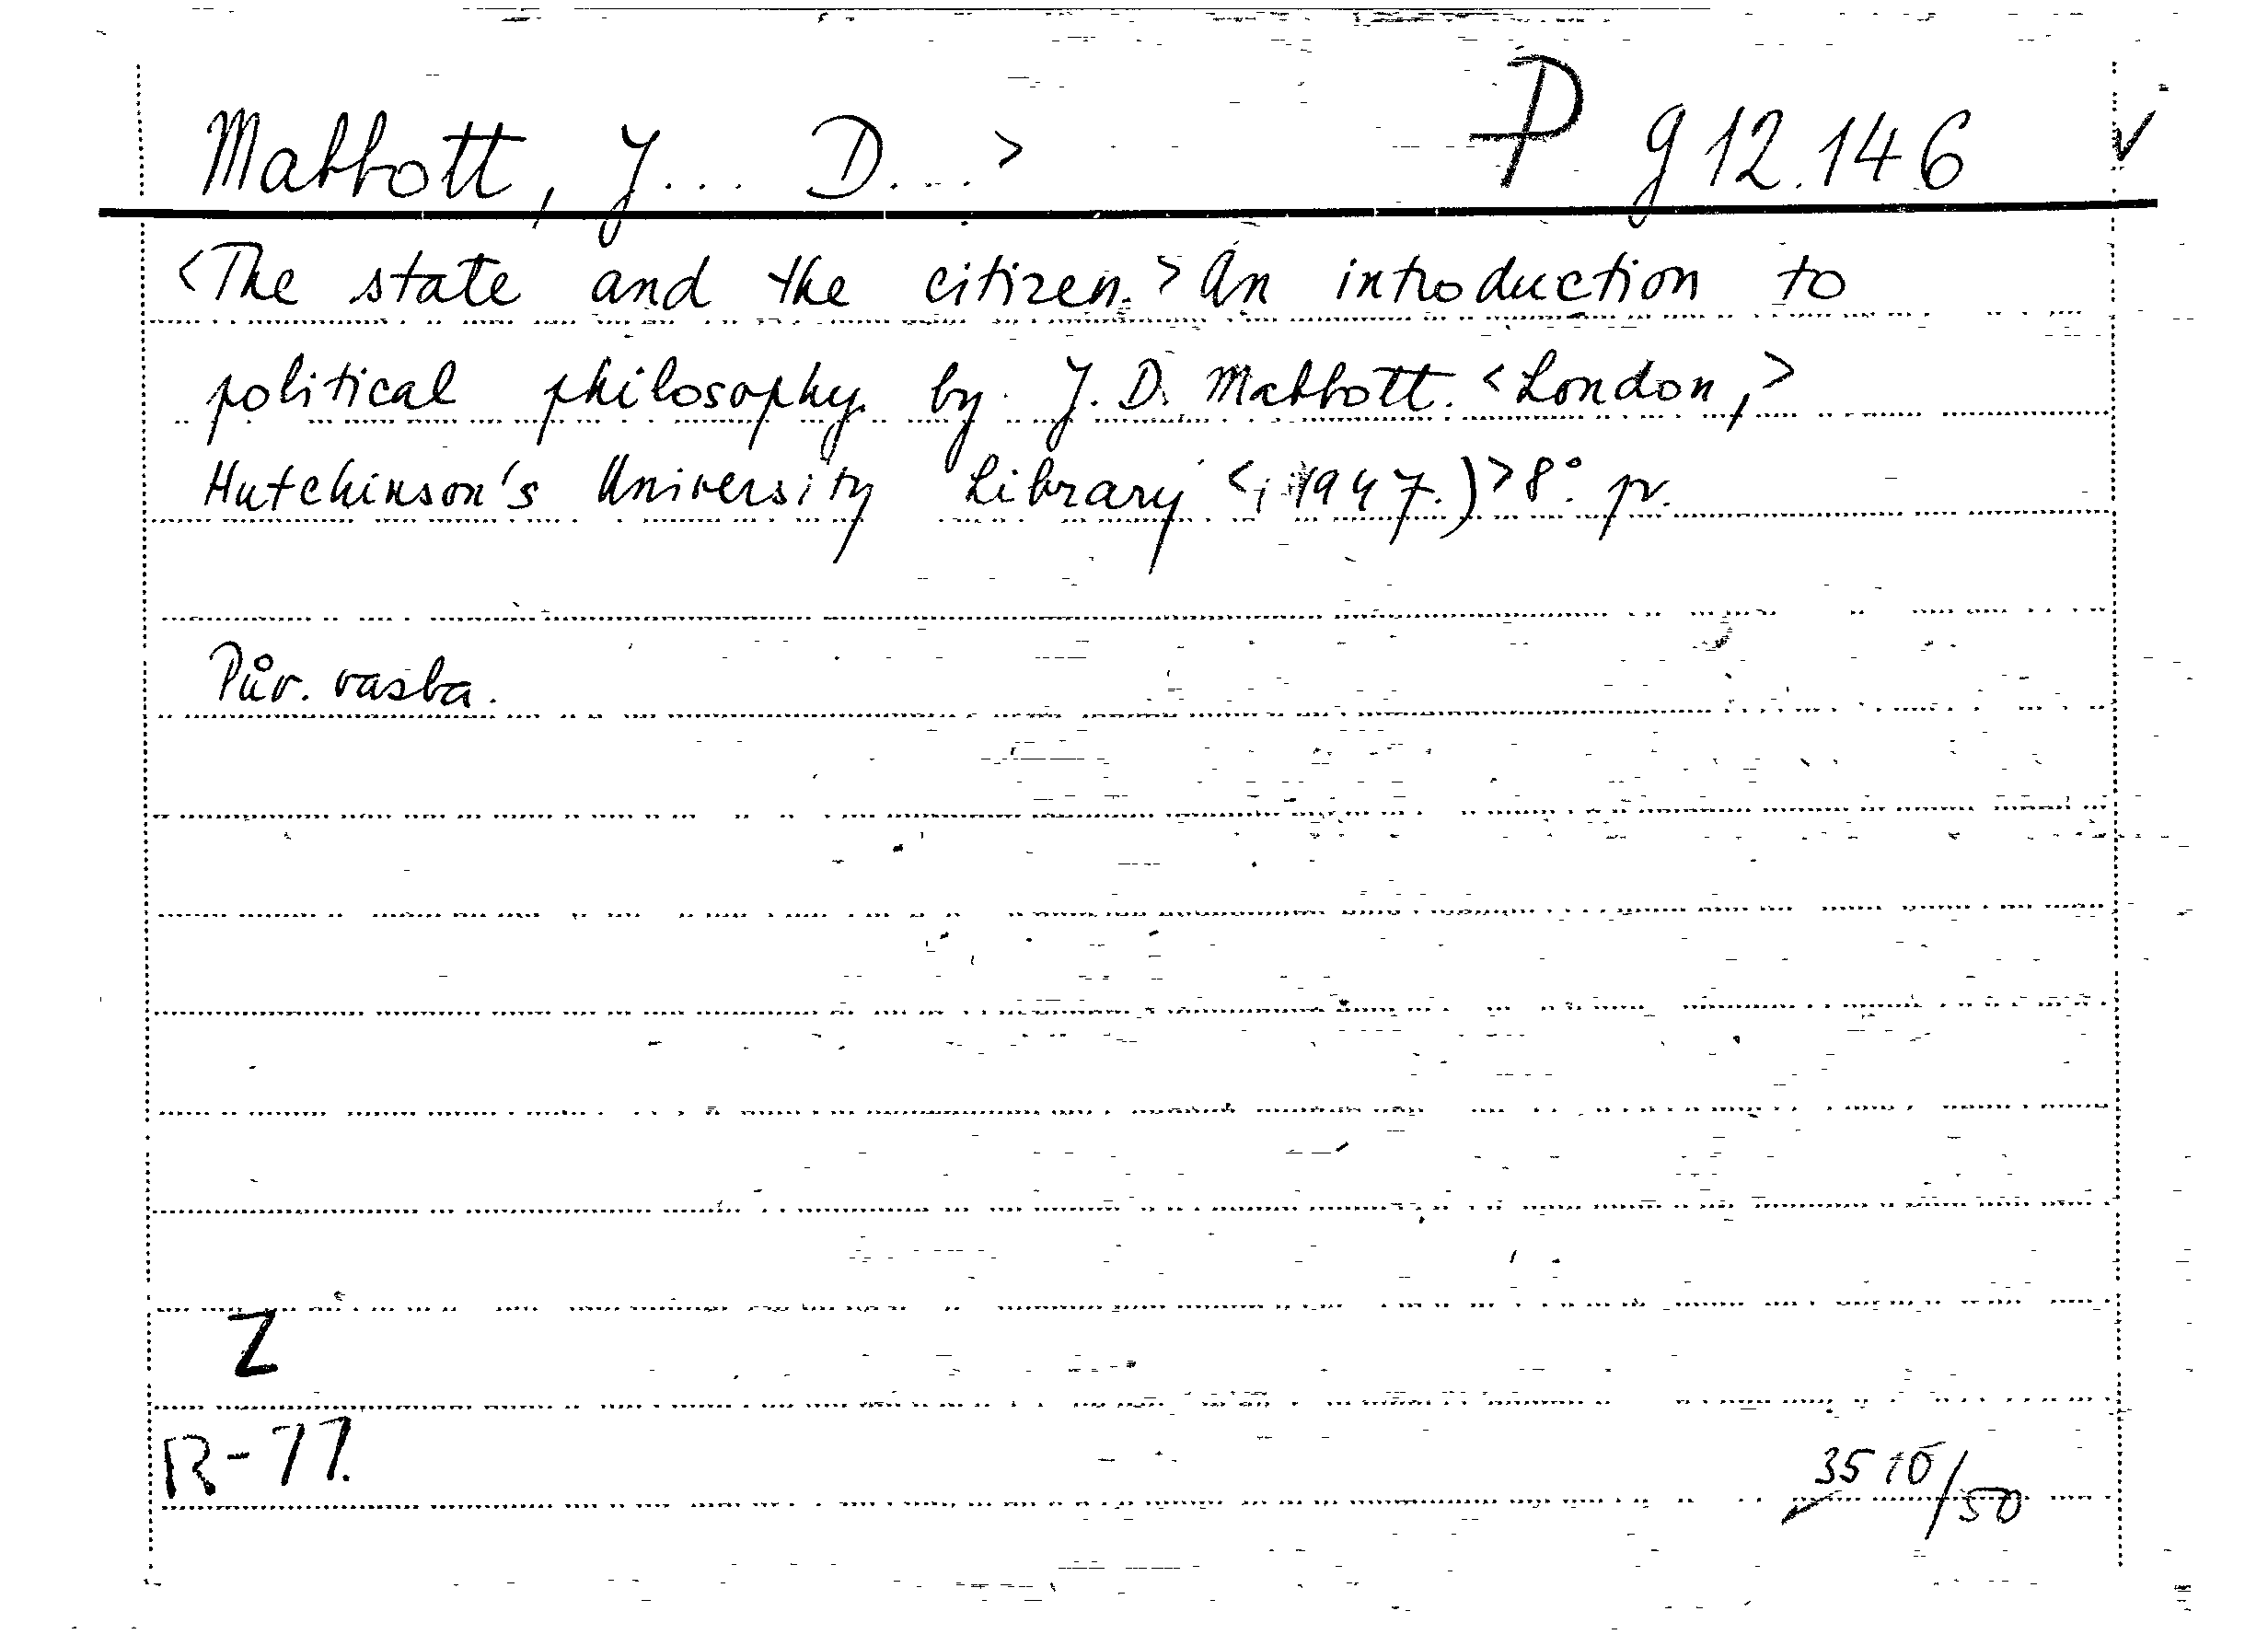 Mabbott, J... D...> P g 12.146 v
<The state and the citizen.> An introduction to
political philosophy by J. D. Mabbott. <London,>
Hutchinson's University Library <1947.)> 8°. pv.
Pův. vasba.
Z
R-77.
3510/50